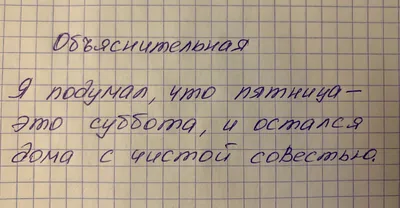 Объяснительная
Я подумал, что пятница —
это суббота, и остался
дома с чистой совестью.